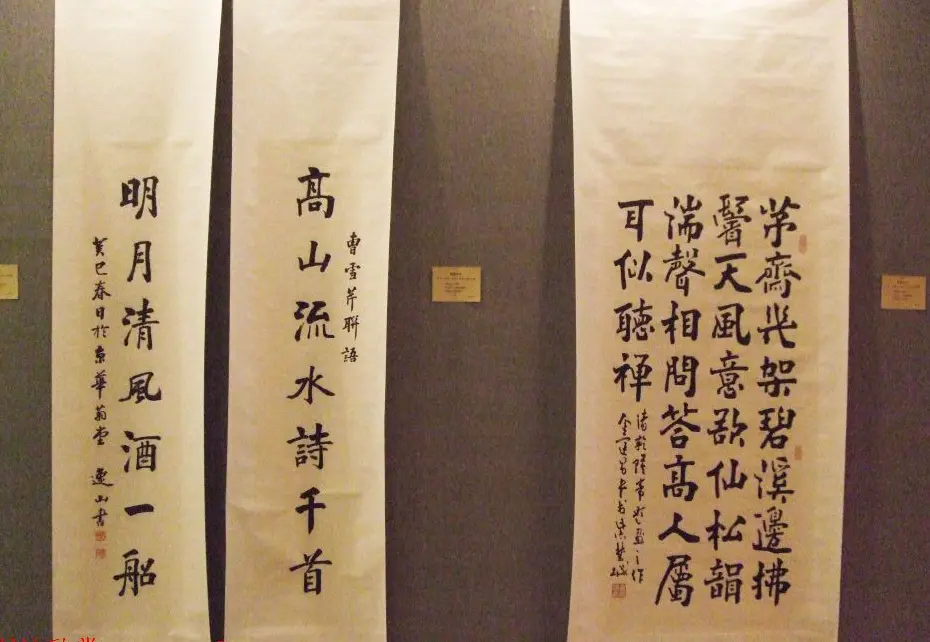 茅齋飛架碧溪邊拂
鬢天風意欲仙松韻
湍聲相問荅高人屬
耳似聽禪
曹雪芹聯語
高山流水詩千首
明月清風酒一船
癸巳春日於京華 山書